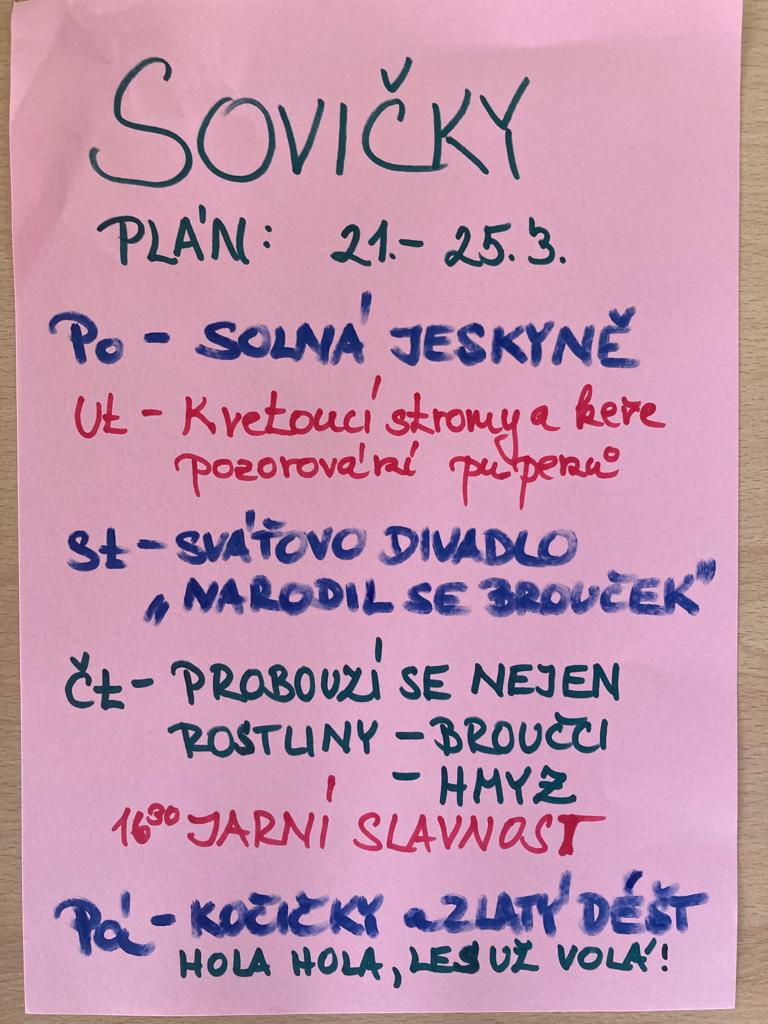 SOVIČKY
PLÁN: 21.- 25.3.
Po - SOLNÁ JESKYNĚ
Út - Kvetoucí stromy a keře
pozorování pupenů
St - SVÁŤOVO DIVADLO
„NARODIL SE BROUČEK"
Čt - PROBOUZÍ SE NEJEN
ROSTLINY - BROUČCI
- HMYZ
16³⁰ JARNÍ SLAVNOST
Pá - KOČIČKY a ZLATÝ DÉŠŤ
HOLA HOLA, LES UŽ VOLÁ!